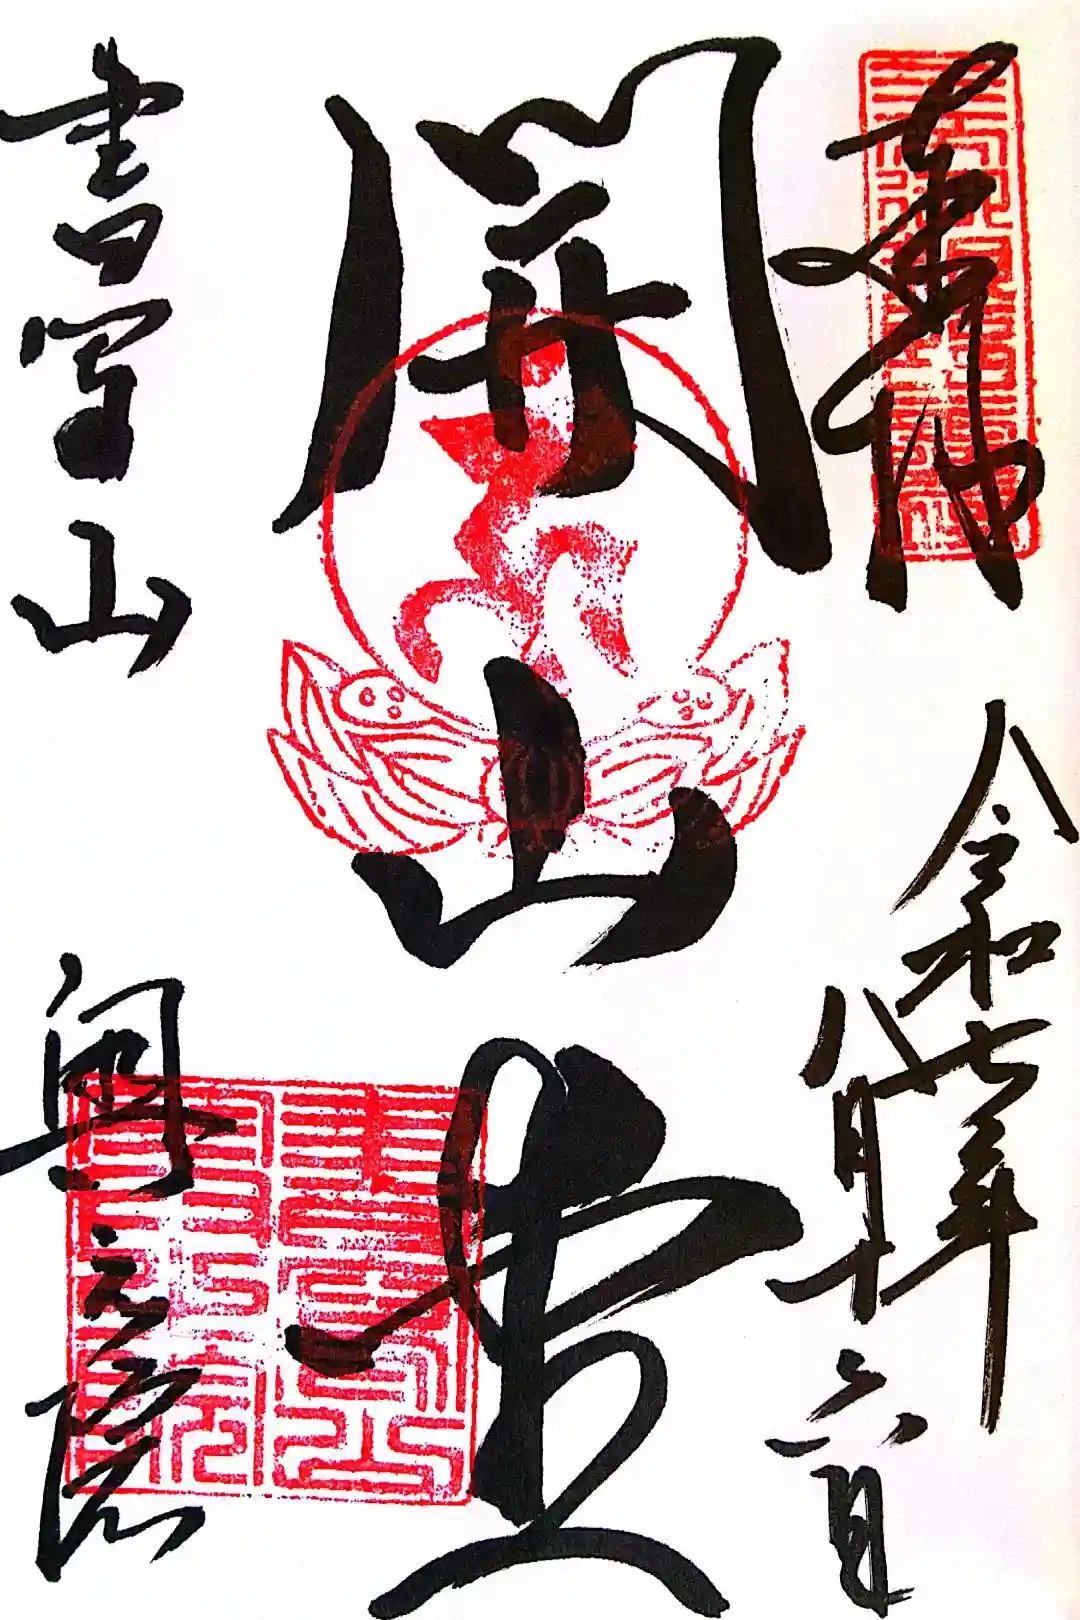 奉拝
令和七年
八月十六日
開山堂
書写山
奥之院